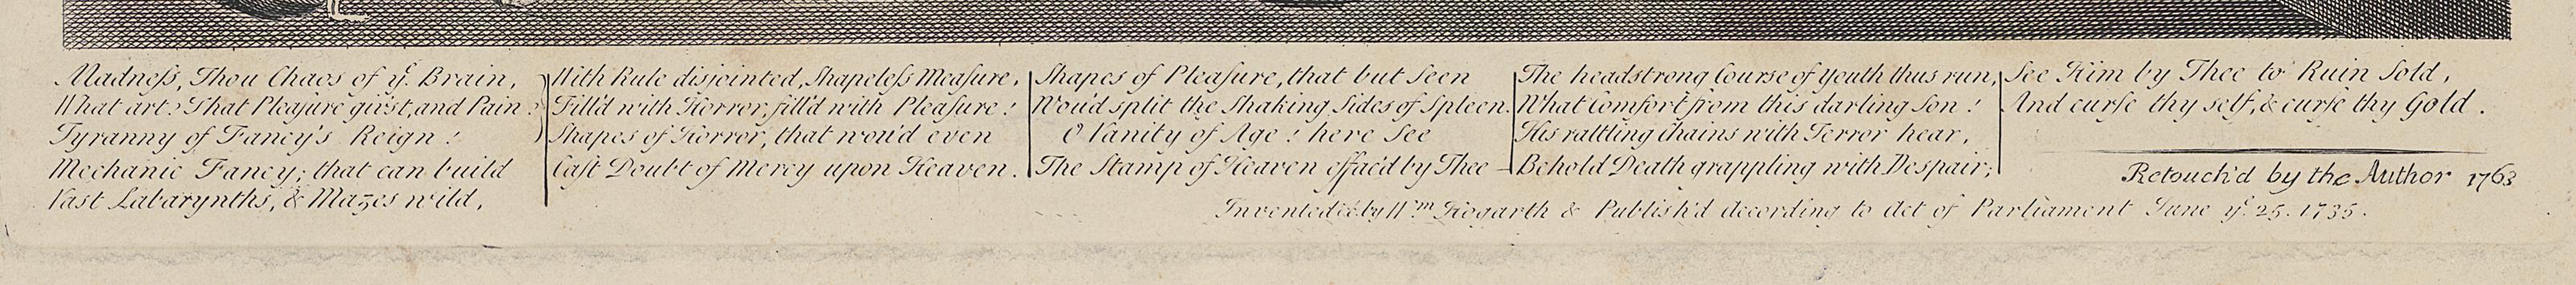 Madneſs, Thou Chaos of yᵉ Brain,
What art? That Pleaſure giv'st, and Pain?
Tyranny of Fancy's Reign!
Mechanic Fancy; that can build
Vast Labarynths, & Mazes wild,
With Rule disjointed, Shapeleſs Meaſure,
Fill'd with Horror, fill'd with Pleaſure!
Shapes of Horror, that wou'd even
Caſt Doubt of Mercy upon Heaven.
Shapes of Pleaſure, that but Seen
Wou'd split the Shaking Sides of Spleen.
O Vanity of Age! here See
The Stamp of Heaven effac'd by Thee
The headstrong Course of Youth thus run,
What Comfort from this darling Son!
His rattling Chains with Terror hear,
Behold Death grappling with Despair;
See Him by Thee to Ruin Sold,
And curſe thy self, & curſe thy Gold.
Retouch'd by the Author 1763
Invented &c. by Wᵐ Hogarth & Publish'd According to Act of Parliament June yᵉ 25. 1735.